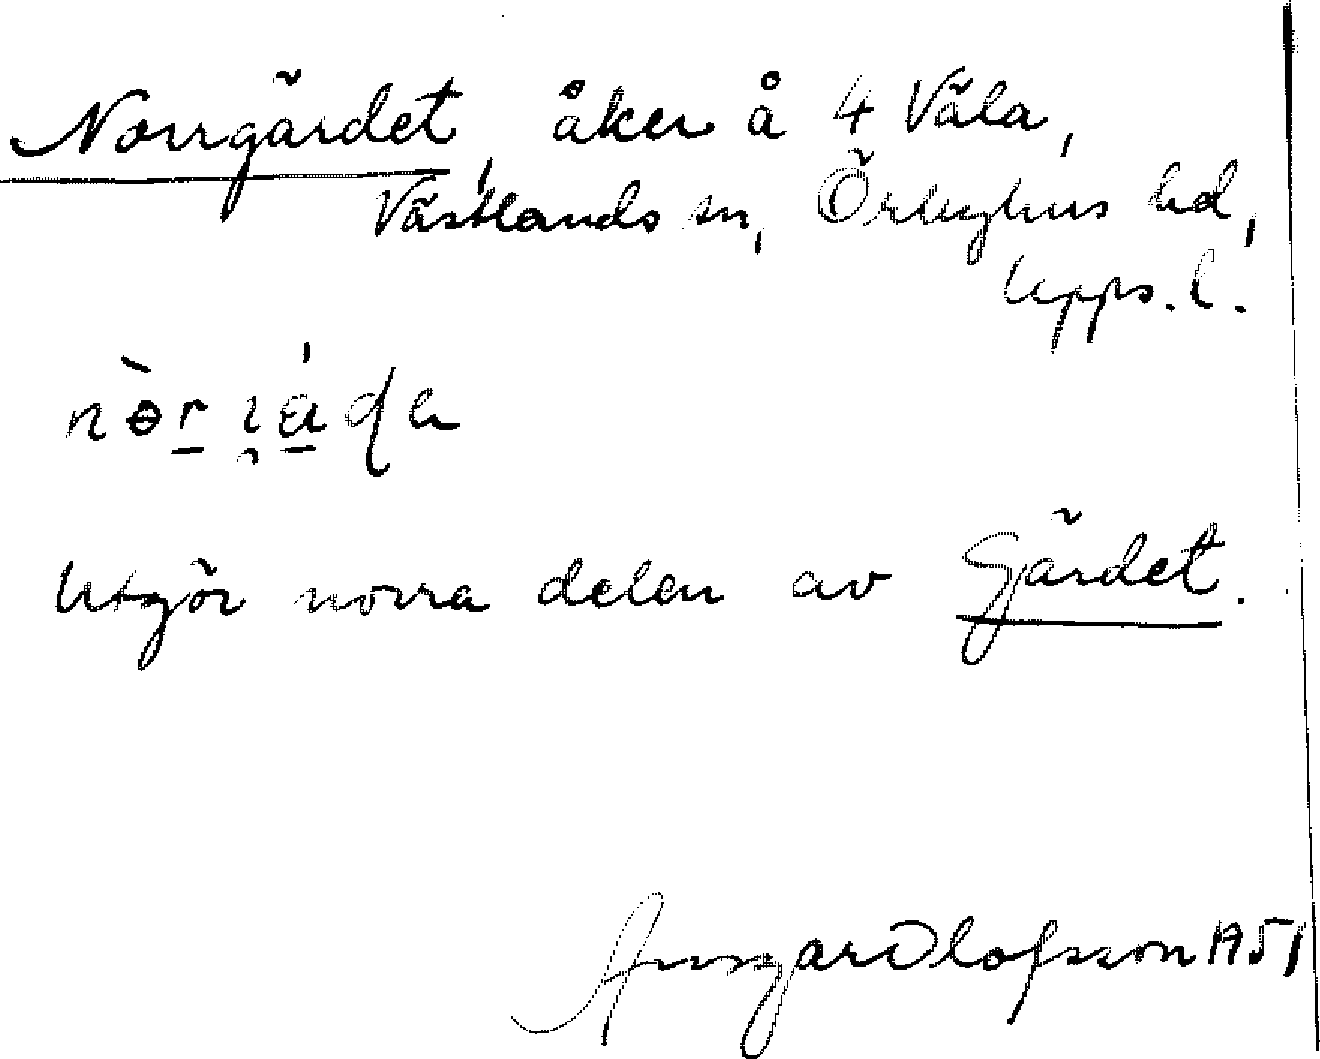 Norrgärdet, åker å 4 Väla,
Västlands sn, Örbyhus hd,
Upps. l.
Utgör norra delen av Gärdet.
Ansgar Olofsson 1951